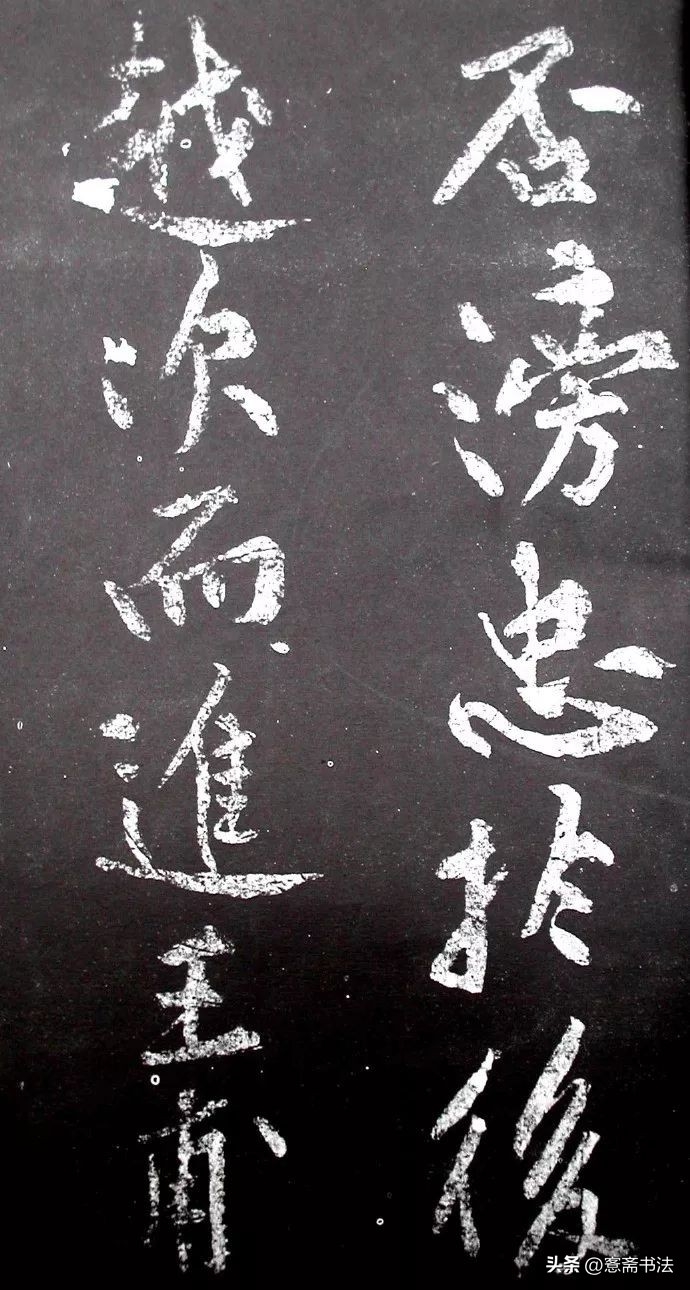 否滂忠於後
越次而進王甫
头条 @窓斋书法